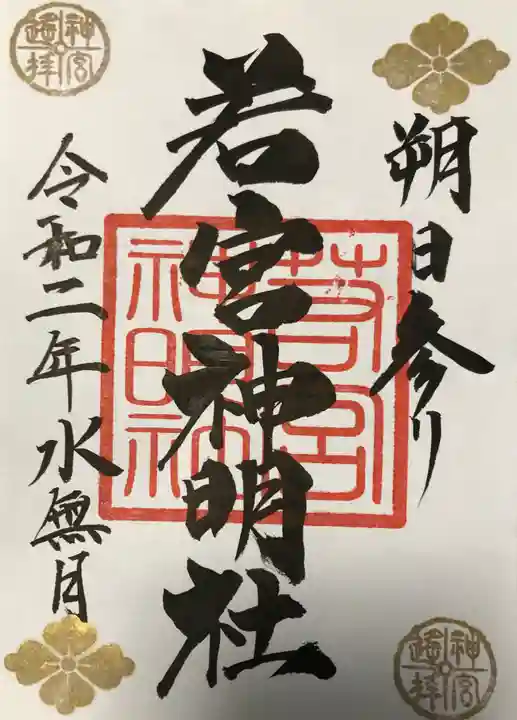 朔日参り
若宮神明社
令和二年水無月
若宮
神明社
神宮
遥拝
神宮
遥拝